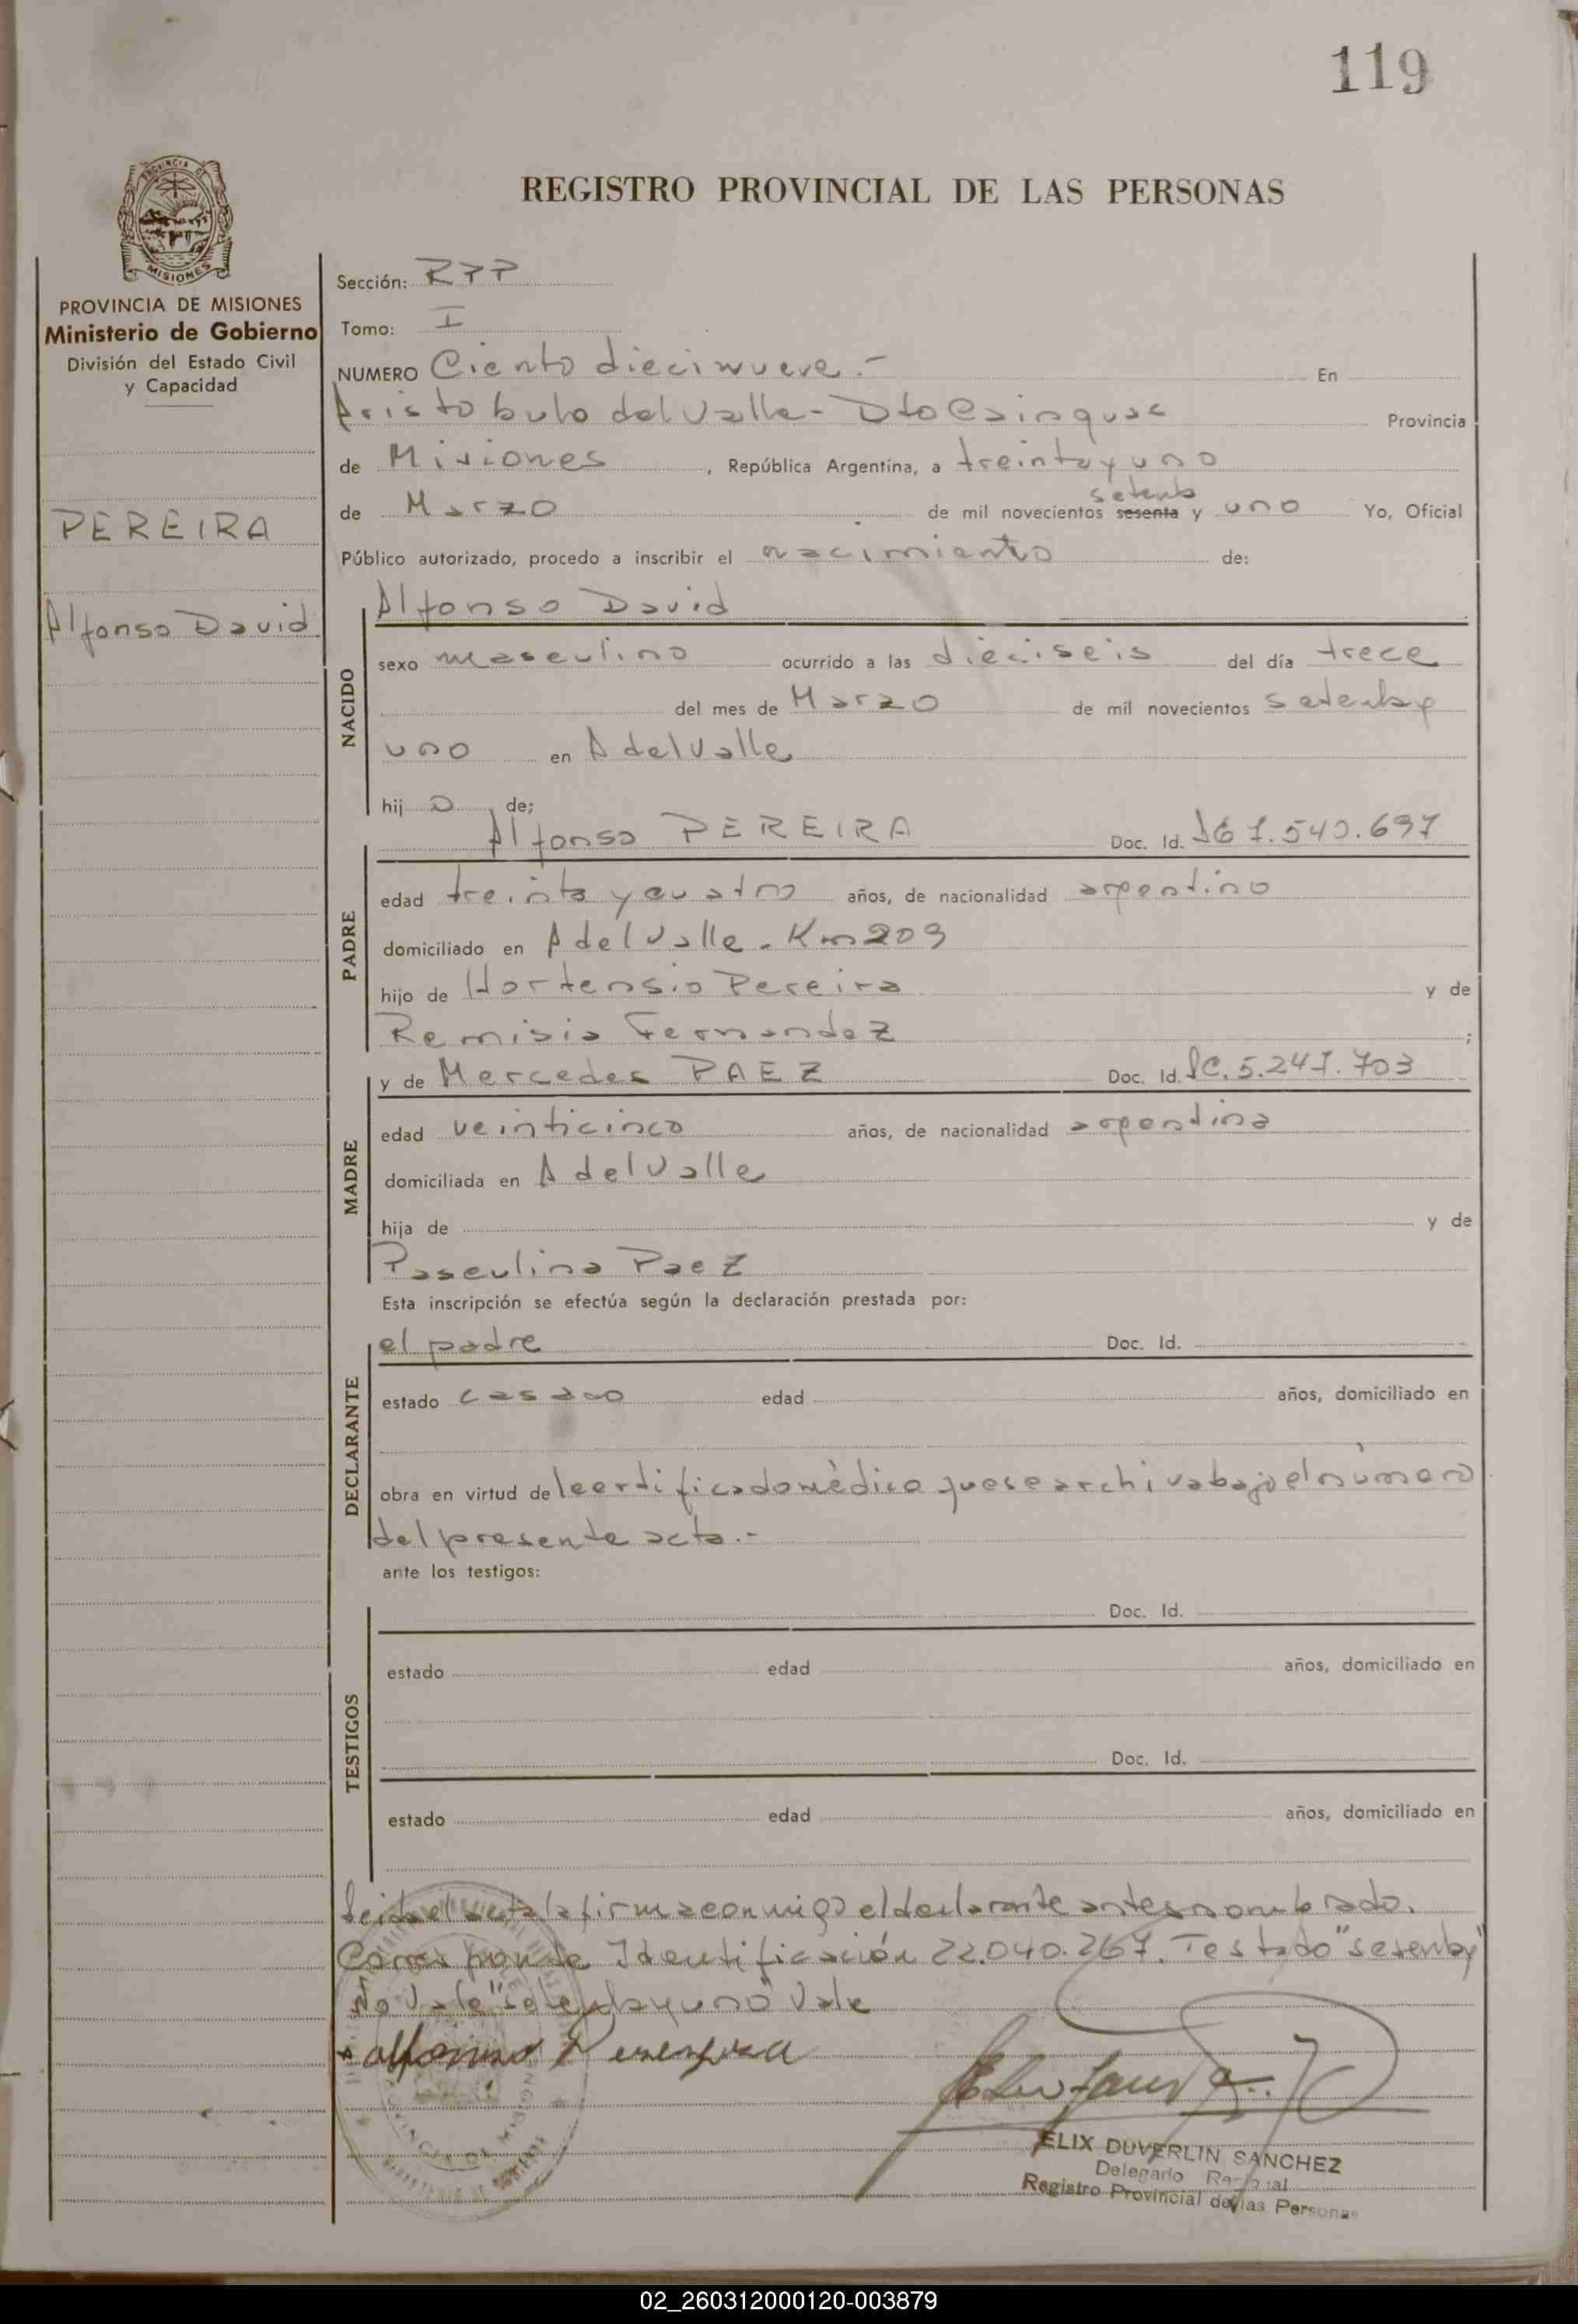 119
REGISTRO PROVINCIAL DE LAS PERSONAS
PROVINCIA DE MISIONES
Ministerio de Gobierno
División del Estado Civil
y Capacidad
PEREIRA
Alfonso David
Sección: RPP
Tomo: I
NUMERO Ciento diecinueve.- En
Aristobulo del Valle - Dto Cainguas Provincia
de Misiones, República Argentina, a treinta y uno
setenta
de Marzo de mil novecientos sesenta y uno Yo, Oficial
Público autorizado, procedo a inscribir el nacimiento de:
Alfonso David
NACIDO
sexo masculino ocurrido a las dieciseis del día trece
del mes de Marzo de mil novecientos setenta y
uno en A del Valle
hijo de;
Alfonso PEREIRA Doc. Id. 7.540.697
PADRE
edad treinta y cuatro años, de nacionalidad argentino
domiciliado en A del Valle - Km 209
hijo de Hortensio Pereira y de
Remisia Fernandez ;
y de Mercedes PAEZ Doc. Id. LC. 5.247.703
MADRE
edad veinticinco años, de nacionalidad argentina
domiciliada en A del Valle
hija de y de
Pasculina Paez
Esta inscripción se efectúa según la declaración prestada por:
el padre Doc. Id.
DECLARANTE
estado casado edad años, domiciliado en
obra en virtud del certificado mèdico que se archiva bajo el número
del presente acta.-
ante los testigos:
Doc. Id.
TESTIGOS
estado edad años, domiciliado en
Doc. Id.
estado edad años, domiciliado en
leida el acta la firma conmigo el declarante antes nombrado.
Corresponde Identificación 22.040.267. Testado "setenta y"
No Vale "setenta y uno" Vale
alfonso Pereyra
ELIX DUVERLIN SANCHEZ
Delegado Regional
Registro Provincial de las Personas
02_260312000120-003879